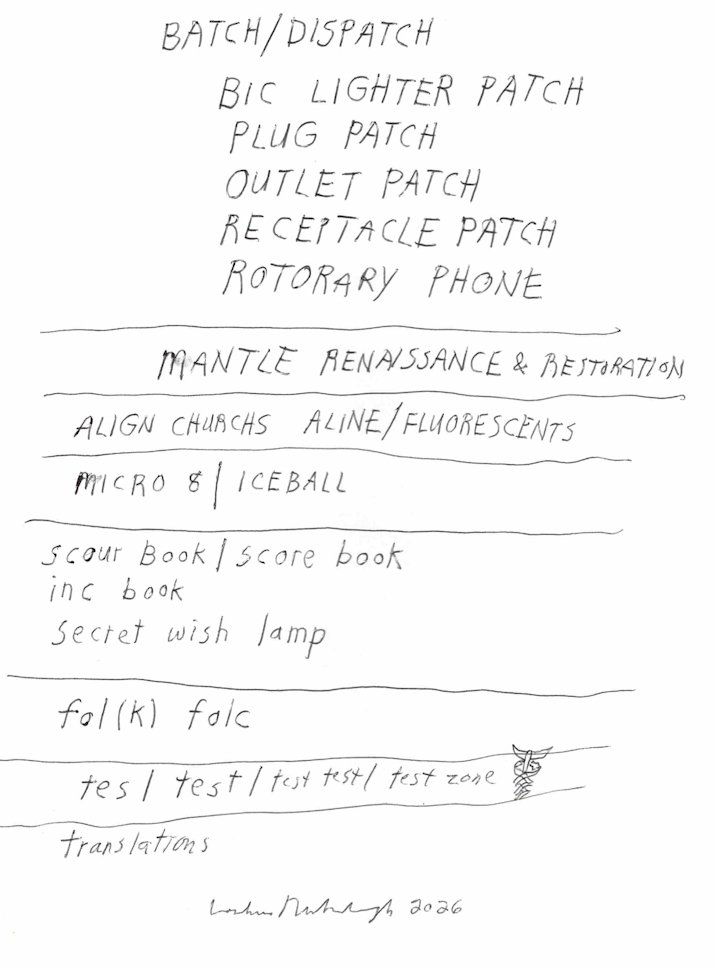 BATCH/DISPATCH
BIC LIGHTER PATCH
PLUG PATCH
OUTLET PATCH
RECEPTACLE PATCH
ROTORARY PHONE
MANTLE RENAISSANCE & RESTORATION
ALIGN CHURCHS ALINE/FLUORESCENTS
MICRO 8| ICEBALL
scour Book/score book
inc book
secret wish lamp
fol(k) folc
tes/test/test test/test zone
translations
2026